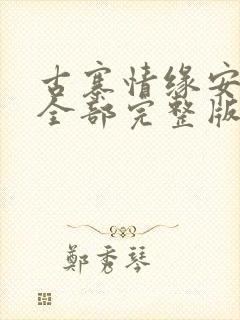 古寨情缘安
全部完整版
鄭秀琴